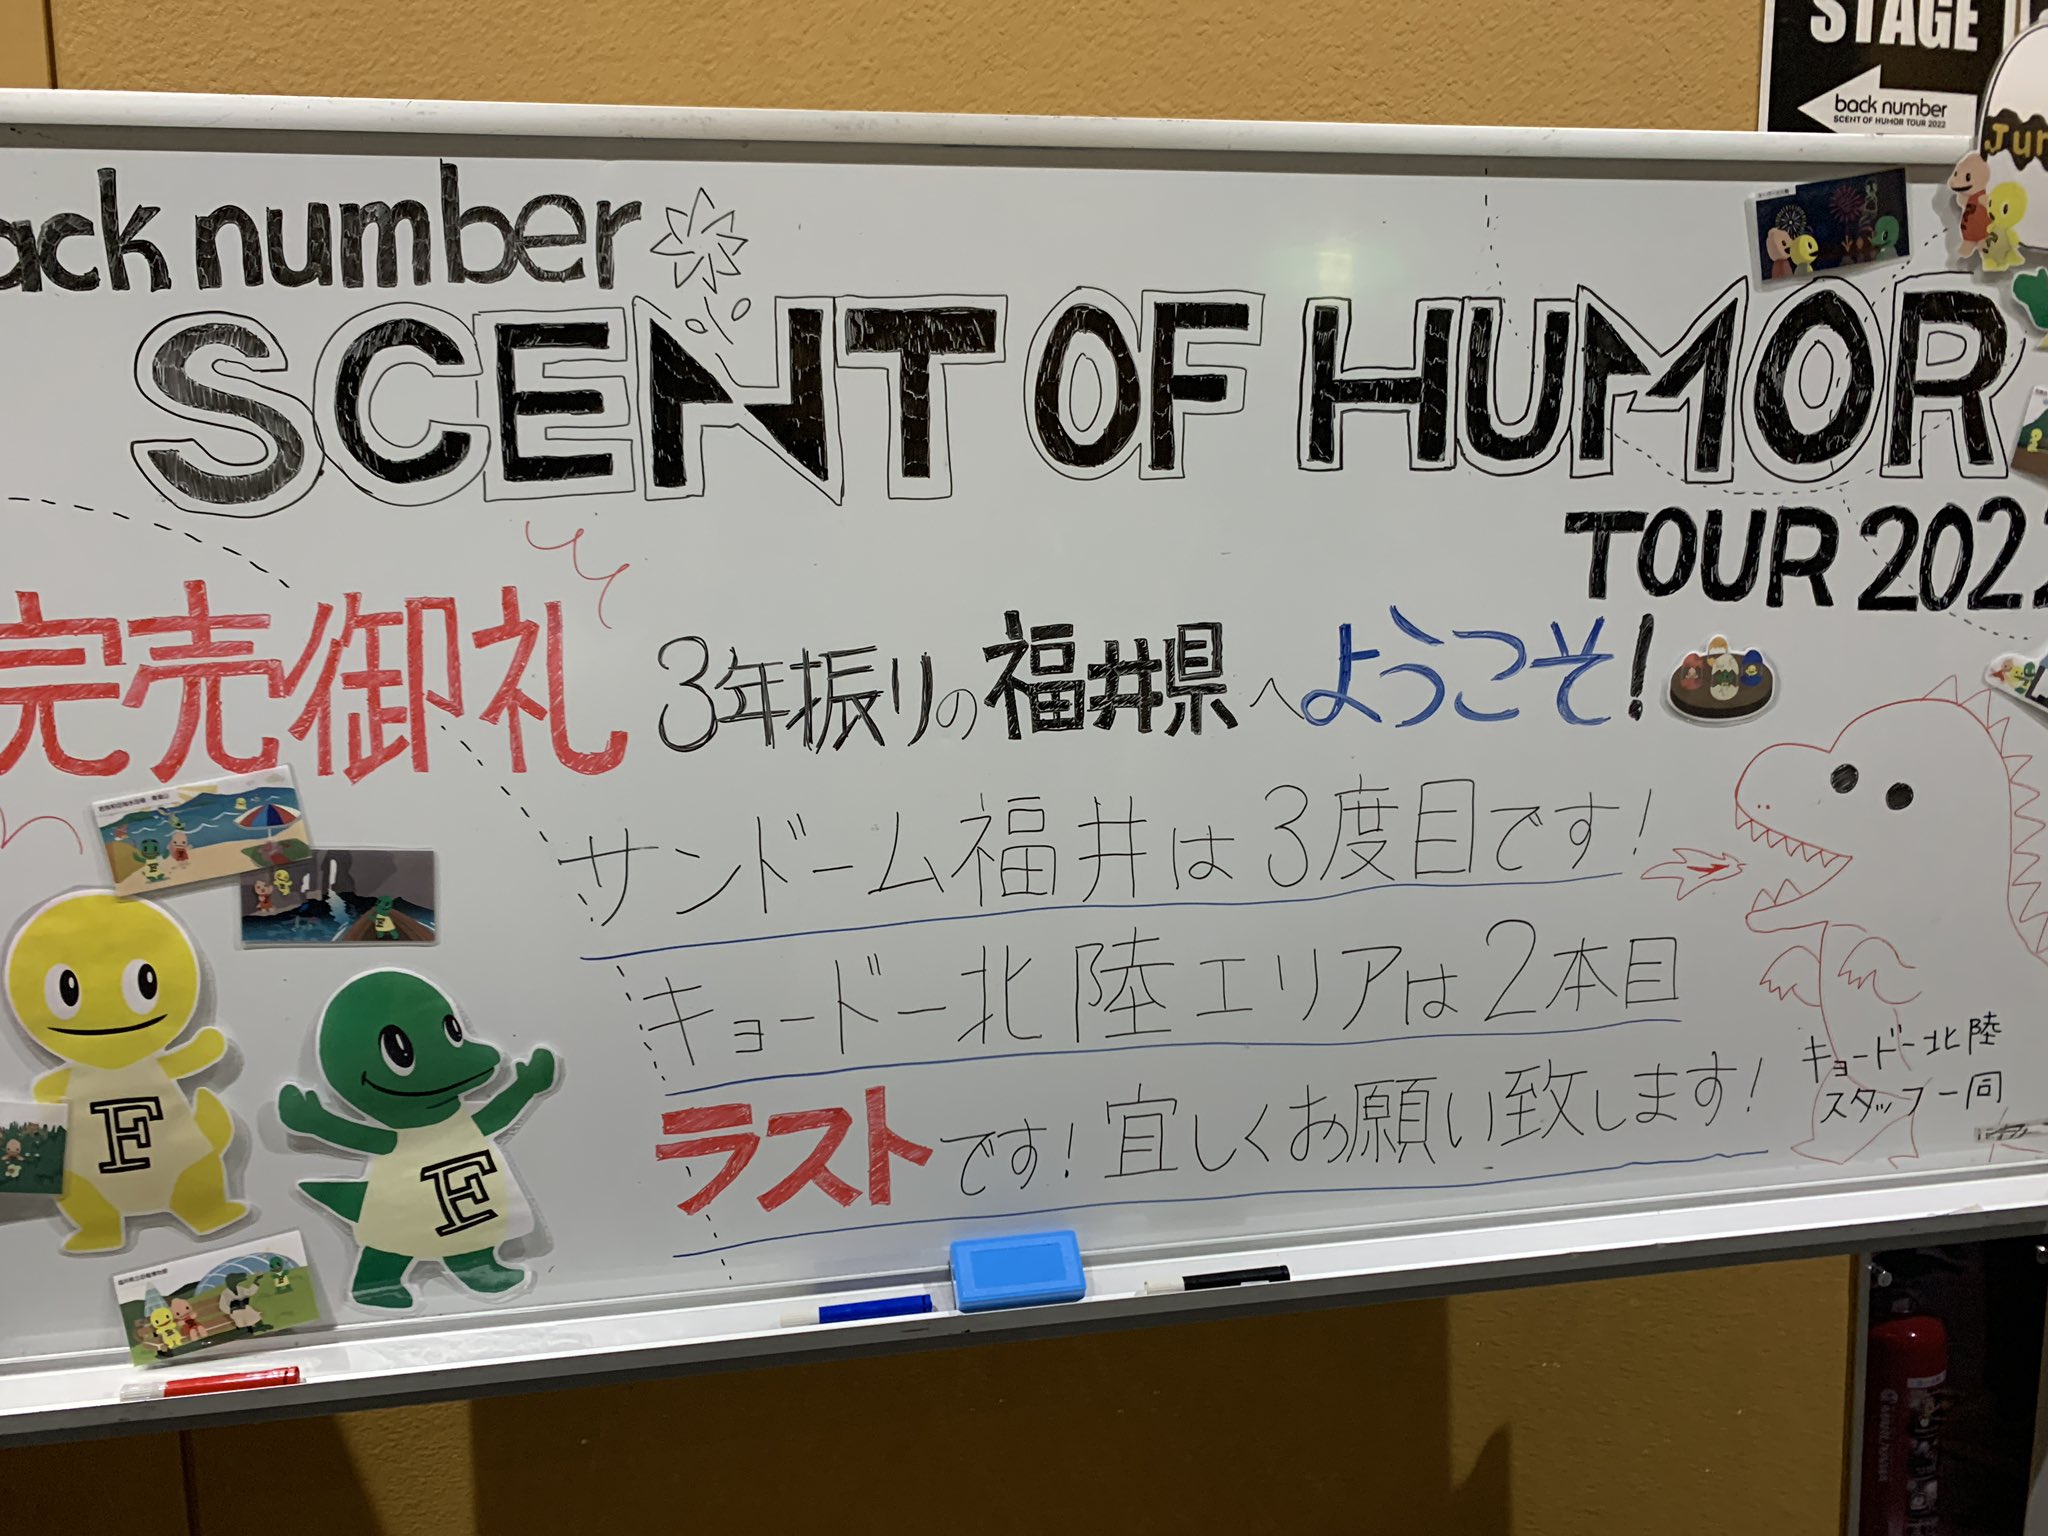 STAGE
back number
SCENT OF HUMOR TOUR 2022
Jur
ack number
SCENT OF HUMOR
TOUR 2022
完売御礼
3年振りの福井県へようこそ!
サンドーム福井は3度目です!
キョードー北陸エリアは2本目
ラストです!宜しくお願い致します!
キョードー北陸
スタッフ一同
F
F